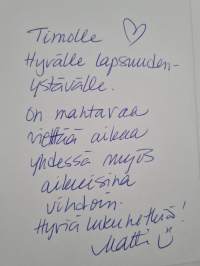 Timolle ♡
Hyvälle lapsuuden-
ystävälle.
On mahtavaa
viettää aikaa
yhdessä myös
aikuisina
vihdoin.
Hyviä lukuhetkiä!
Matti ☺